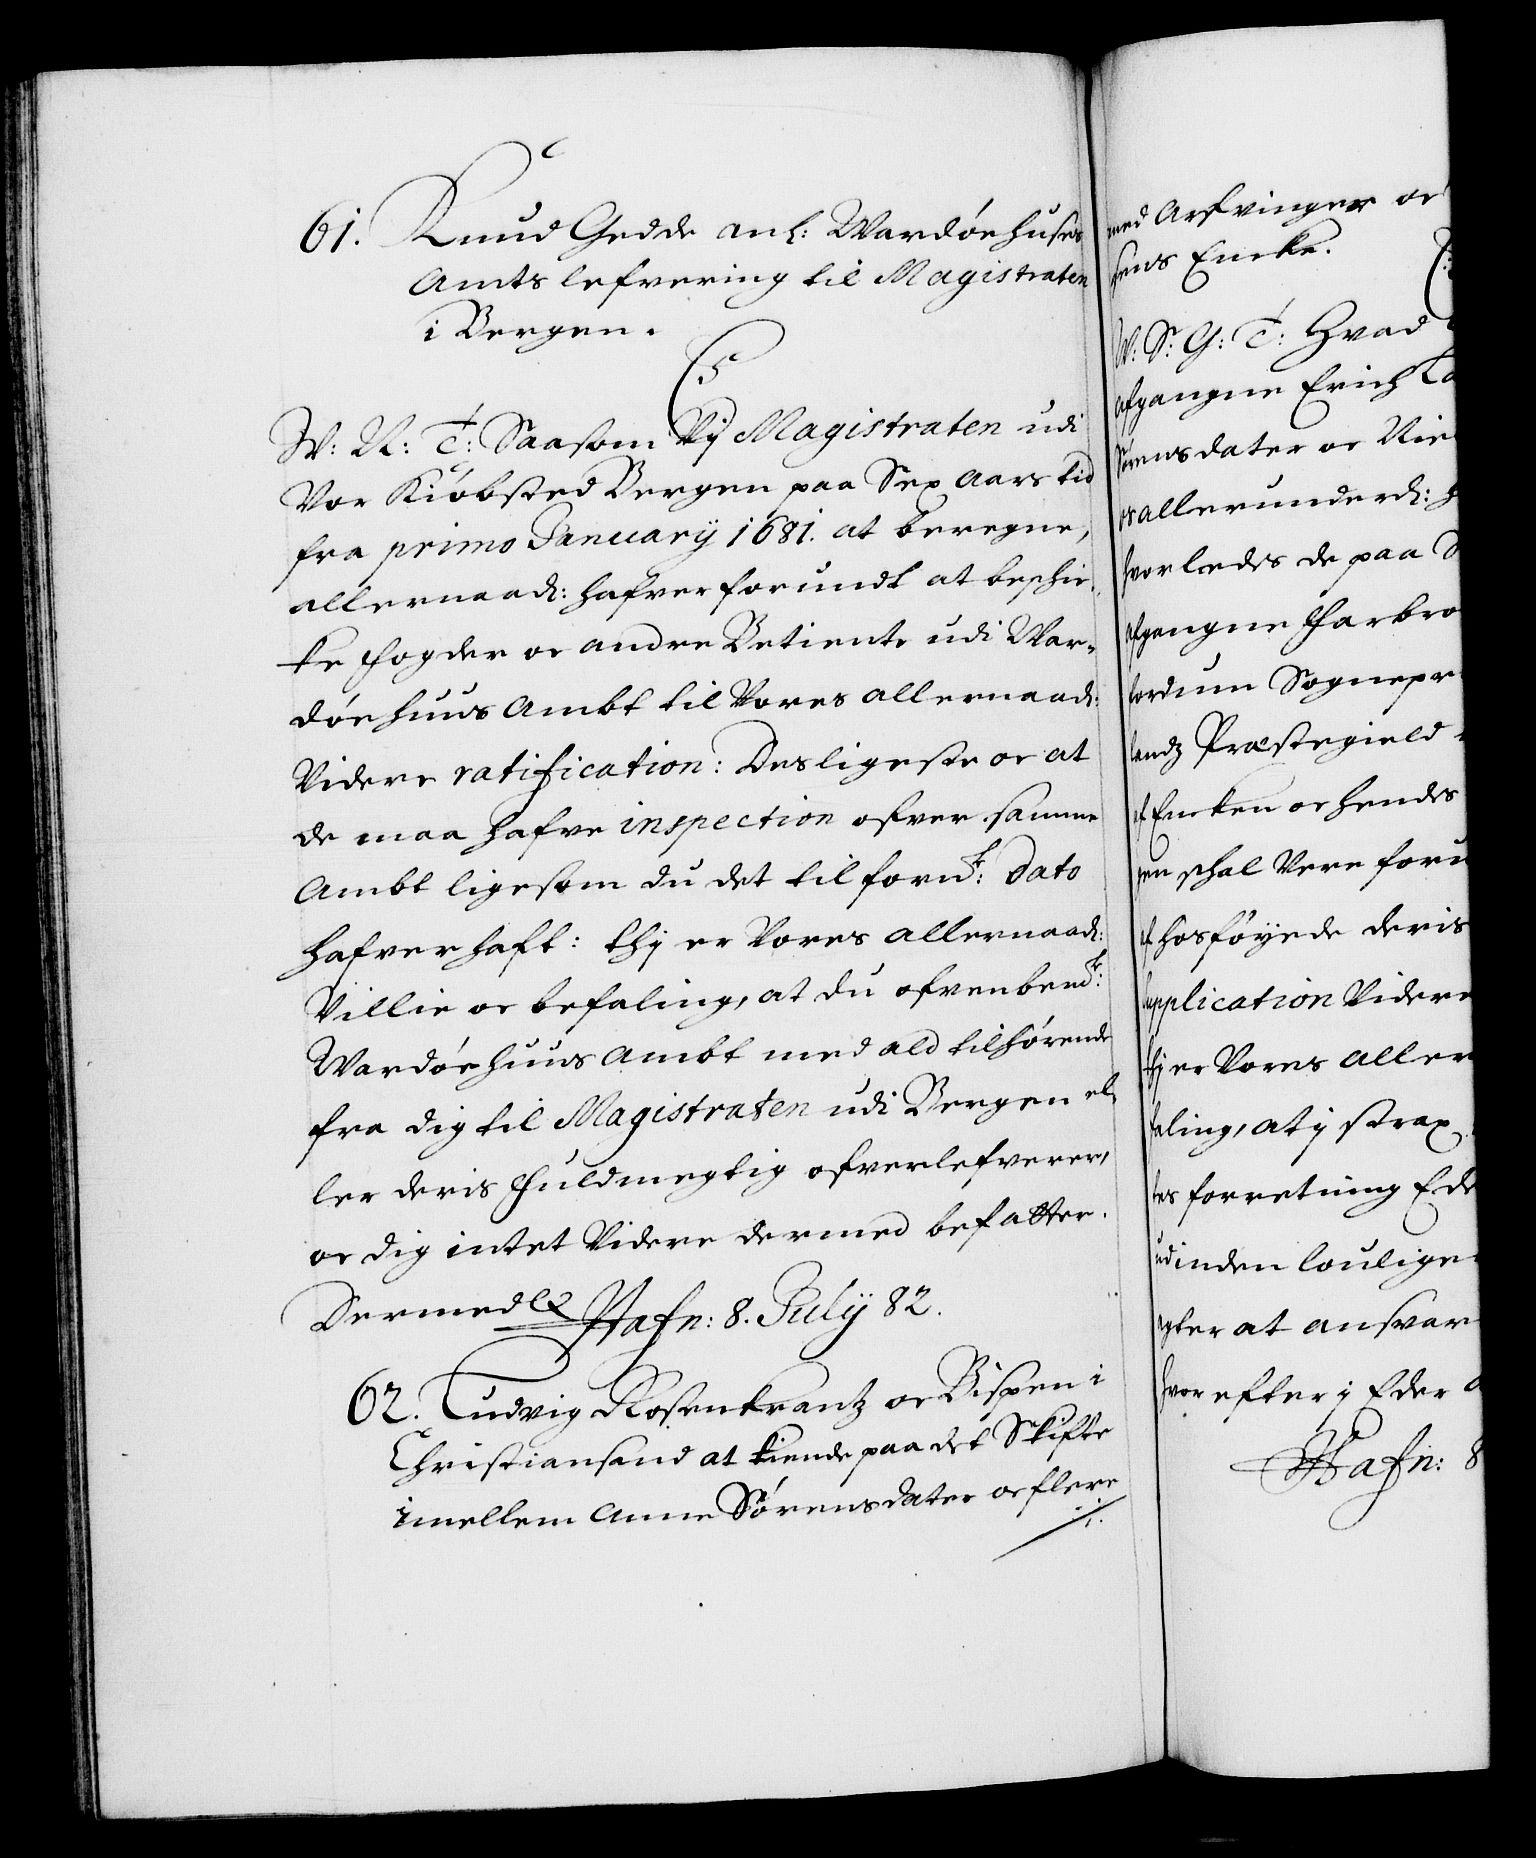 61. Knud Gedde anl: Wardöehuses
Amts lefvering til Magistraten
i Bergen.
C5
W: N: T: Saasom Vij Magistraten udi
Vor Kiöbsted Bergen paa Sex Aars tid
fra primo Januarij 1681. at beregne,
allernaadl: hafver forundt at beschic-
ke Fogder oc andre Betiente udi War-
döehuus Ambt til Vores allernaadl:
Videre ratification: Desligeste oc at
de maa hafve inspection ofver samme
Ambt ligesom du det til fornd: dato
hafver haft: thj er Vores allernaadl:
Villie oc befaling, at du ofvenbemt:
Wardöehuus Ambt med ald tilhörende
fra dig til Magistraten udi Bergen el-
ler deris Fuldmegtig ofverlefverer,
oc dig intet Videre dermed befatter.
Dermed &c Hafn: 8. Julij 82.
62. Ludvig Rosenkrantz oc Bispen i
Christiansand at kiende paa det Skifte
imellem Anne Sörensdater oc flere
med Arfvinger oc
sens Encke.
W: S: G: T: Hvad
afgangne Erich
Sörensdater oc
os allerunderdl:
hvorledes de paa
afgangne Farbro
fordum Sognepr
landz Præstegield
af Encken oc hendes
gen schal Vere foru
af hosföyede deris
supplication Videre
thj er Vores aller
faling, at j strax
tes forretning Ede
udinden louligen
agter at ansvar
hvorefter j Eder
Hafn: 8